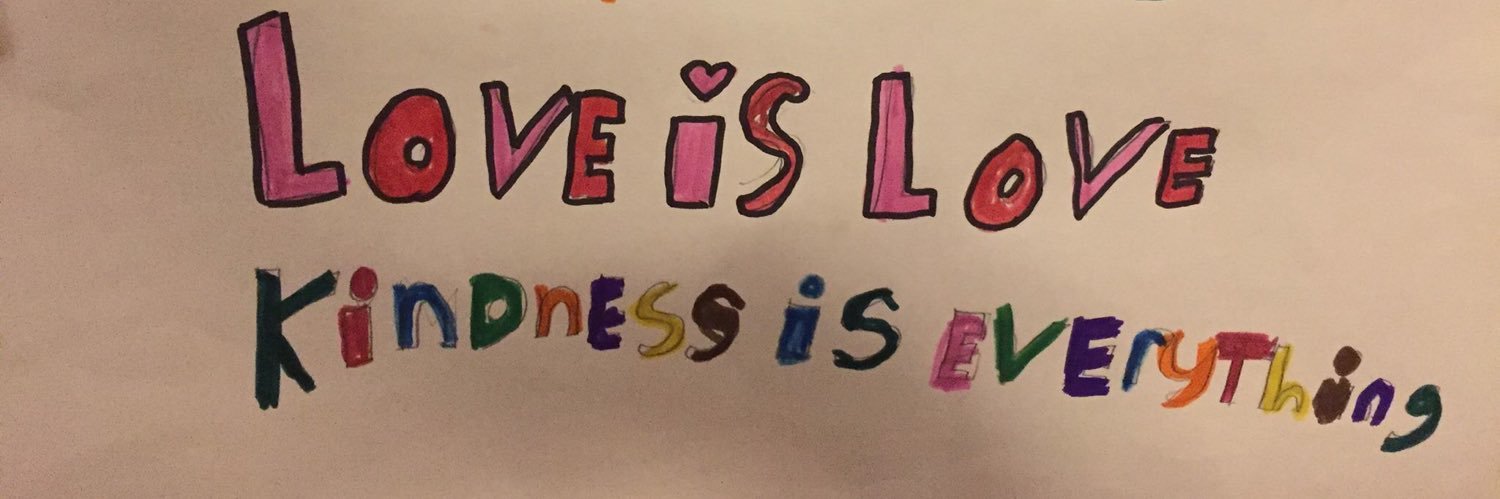 LOVE iS LOVE
KinDnESS iS EVErYThing